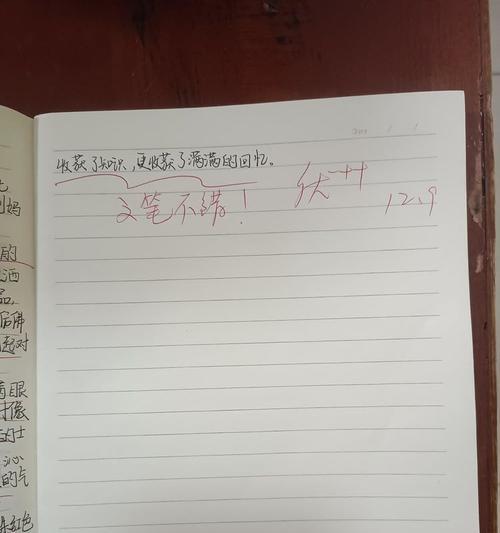 收获了知识,更收获了满满的回忆。
文笔不错!
优++
12.9
妈
的
洒
品,
后佛
对
眼
像
的士
沁
的气
红色